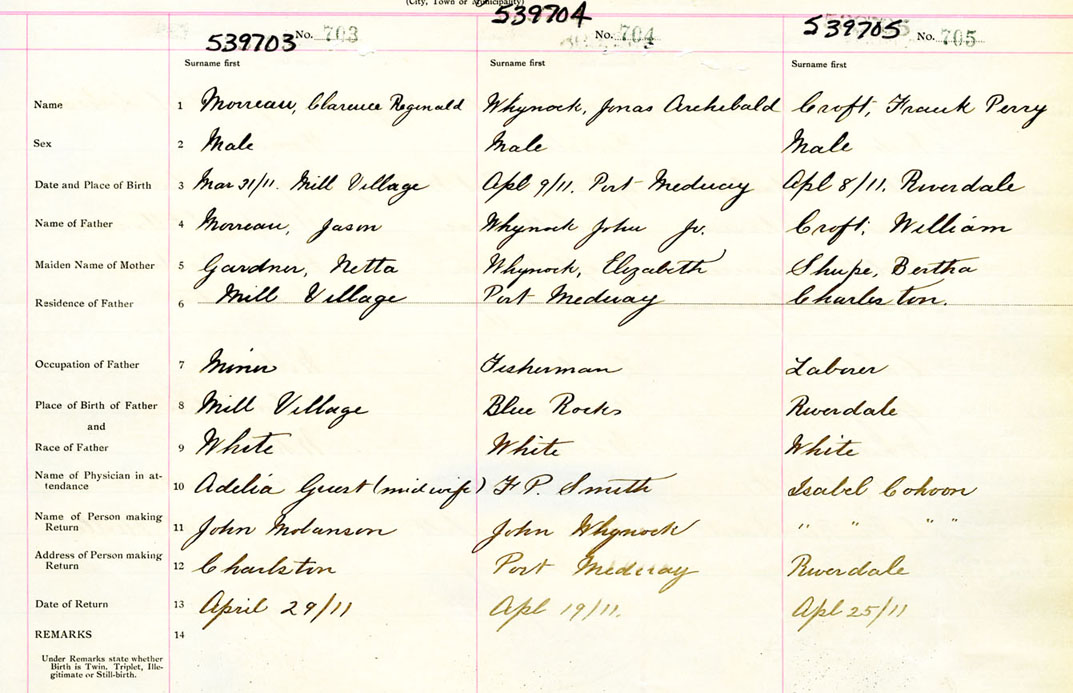 (City, Town or Municipality)
539703 No. 703 539704 No. 704 539705 No. 705
Surname first Surname first Surname first
Name 1 Morreau, Clarence Reginald Whynock, Jonas Archibald Croft, Frank Perry
Sex 2 Male Male Male
Date and Place of Birth 3 Mar 31/11. Mill Village Apl 9/11. Port Medway Apl 8/11. Riverdale
Name of Father 4 Morreau, Jason Whynock John Jr. Croft, William
Maiden Name of Mother 5 Gardner, Netta Whynock, Elizabeth Shupe, Bertha
Residence of Father 6 Mill Village Port Medway Charleston.
Occupation of Father 7 Miner Fisherman Laborer
Place of Birth of Father 8 Mill Village Blue Rocks Riverdale
and
Race of Father 9 White White White
Name of Physician in at-
tendance 10 Adelia Guest (midwife) F P. Smith Isabel Cohoon
Name of Person making
Return 11 John John Whynock " " " "
Address of Person making
Return 12 Charleston Port Medway Riverdale
Date of Return 13 April 29/11 Apl 19/11. Apl 25/11
REMARKS 14
Under Remarks state whether
Birth is Twin, Triplet, Ille-
gitimate or Still-birth.